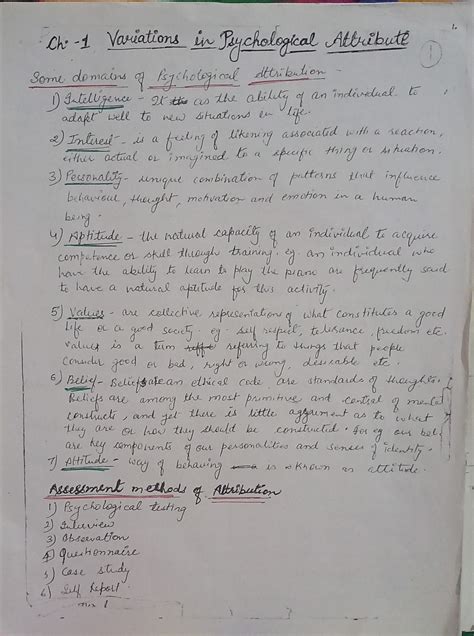 Ch-1 Variations in Psychological Attribute
1
Some domains of Psychological Attribution -
1) Intelligence - It is the ability of an individual to
adapt well to new situations in life.
2) Interest - is a feeling of likening associated with a reaction,
either actual or imagined to a specific thing or situation.
3) Personality - unique combination of patterns that influence
behaviour, thought, motivation and emotion in a human
being.
4) Aptitude - the natural capacity of an individual to acquire
competence or skill through training. eg. an individual who
have the ability to learn to play the piano are frequently said
to have a natural aptitude for this activity.
5) Values - are collective representations of what constitutes a good
life or a good society. eg. self respect, tolerance, freedom etc.
values is a term referring to things that people
consider good or bad, right or wrong, desirable etc.
6) Belief - Beliefs are an ethical code, are standards of thoughts.
Beliefs are among the most primitive and central of mental
constructs, and yet there is little agreement as to what
they are or how they should be constructed. for eg our bel
are key components of our personalities and senses of identity.
7) Attitude - way of behaving is known as attitude.
Assessment methods of Attribution
1) Psychological testing
2) Interview
3) Observation
4) Questionnaire
5) Case study
6) Self Report